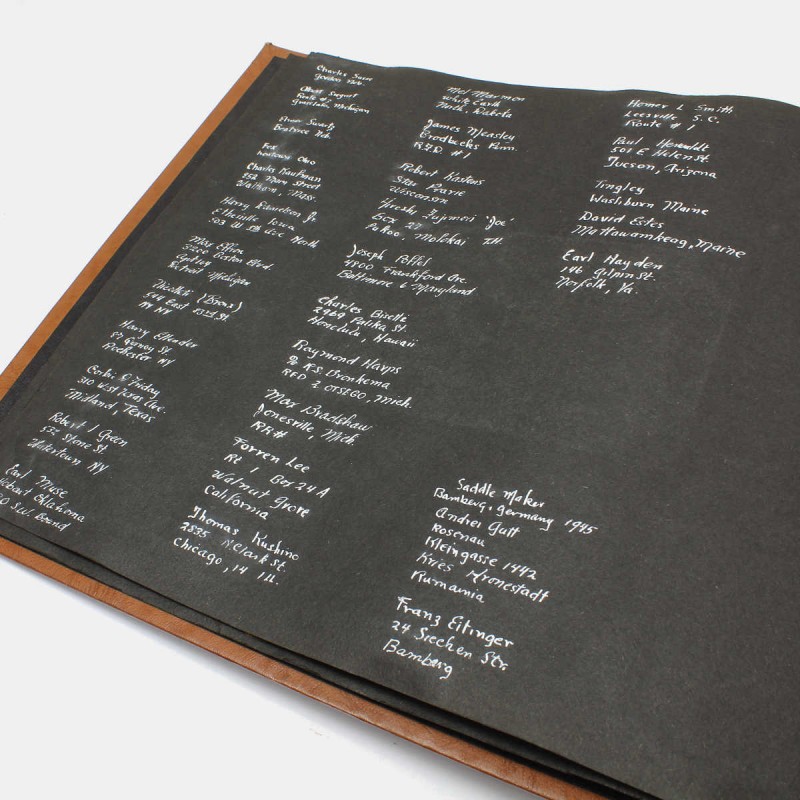 Charles
Michigan
Swartz
Beatrice Neb.
Fox
Ohio
Charles Kaufman
152 Mary Street
Waltham, Mass.
Harry
Iowa
503 W North
Max Effron
Blvd.
Detroit Michigan
(Bronx)
544 East St.
NY NY
Harry
87 St
Rochester NY
Friday
310 West Texas Ave.
Midland, Texas
Robert J Green
522 Stone St
Watertown NY
Earl Muse
Hobart Oklahoma
Mel Marmon
White Earth
North, Dakota
James Measley
Brodbecks Penn.
R.F.D. #1
Robert Kastens
Star Prarie
Wisconsin
Hiroshi "Joe"
Box 22
Molokai T.H.
Joseph Poffel
4800 Frankford Ave.
Baltimore 6 Maryland
Charles
2969 Palika St.
Honolulu, Hawaii
Raymond Harps
% K.S. Bronkema
RFD 2 OTSEGO, Mich.
Max Bradshaw
Jonesville, Mich.
RR#
Forren Lee
Rt 1 Box 24A
Walnut Grove
California
Thomas Kushino
2835 N Clark St.
Chicago, 14 Ill.
Homer L Smith
Leesville S.C.
Route #1
Paul
501 E Helen St.
Tucson, Arizona
Tingley
Washburn Maine
David Estes
Mattawamkeag, Maine
Earl Hayden
146 Gilpin St.
Norfolk, Va.
Saddle Maker
Bamberg, Germany 1945
Andrei Gutt
Rosenau
Kleingasse 1442
Kries Kronestadt
Rumania
Franz Eitinger
24 Siechen Str.
Bamberg